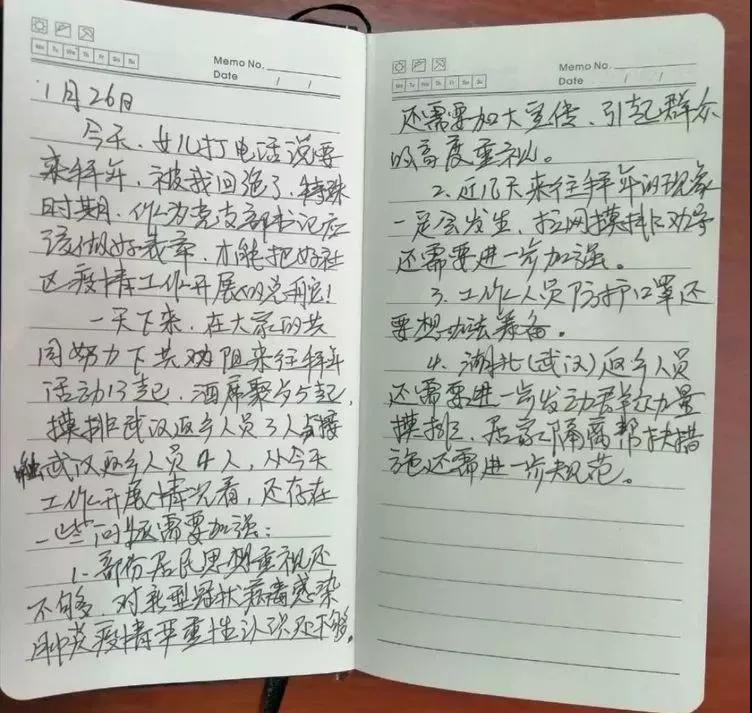 Mo Tu We Th Fr Sa Su
Memo No.
Date / /
1月26日
今天，女儿打电话说要
来拜年，被我回绝了，特殊
时期，作为党支部书记应
该做好表率，才能把好社
区疫情工作开展的更利官！
一天下来，在大家的共
同努力下共劝阻来往拜年
活动13起，酒席聚会5起，
摸排武汉返乡人员3人，接
触武汉返乡人员4人，从今天
工作开展情况看，还存在
一些问题需要加强：
1. 部份居民思想重视还
不够，对新型冠状病毒感染
肺炎疫情严重性认识还不够，
Mo Tu We Th Fr Sa Su
Memo No.
Date / /
还需要加大宣传，引起群众
的高度重视。
2. 近几天来往拜年的现象
一定会发生，拉网摸排、劝导
还需要进一步加强。
3. 工作人员防护口罩还
要想办法筹备。
4. 湖北（武汉）返乡人员
还需要进一步发动群众力量
摸排，居家隔离帮扶措
施还需进一步规范。